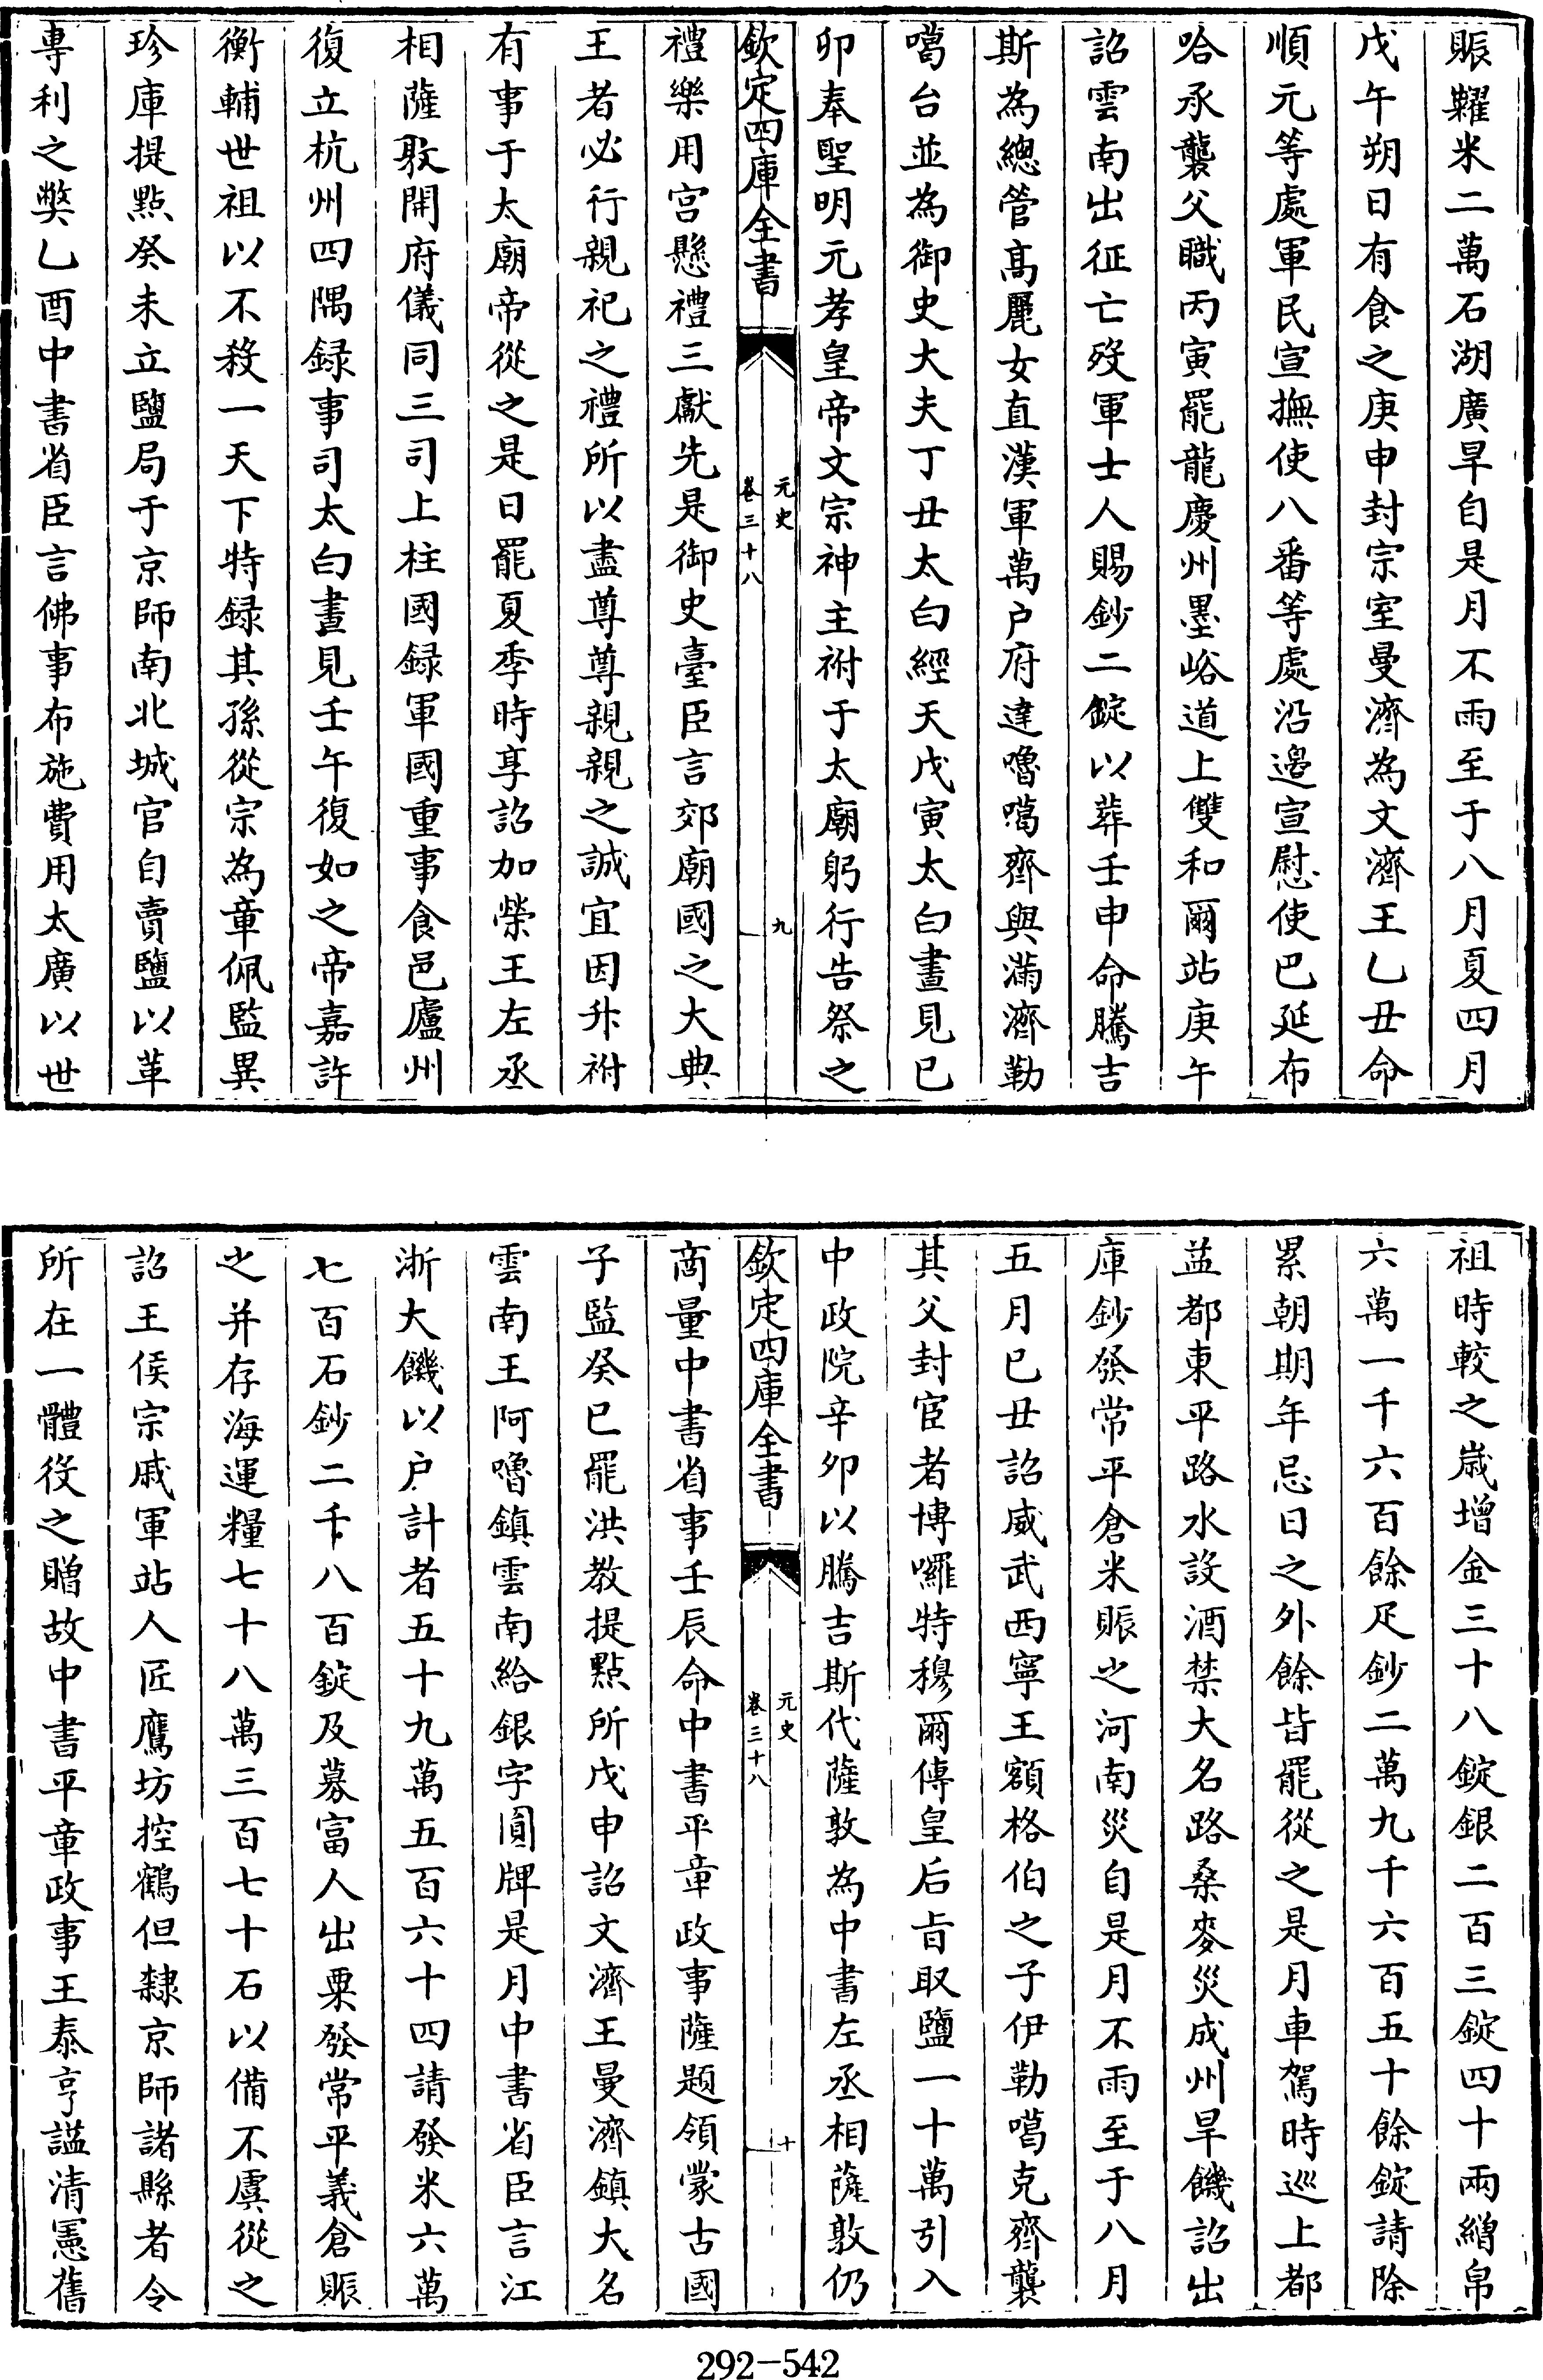 賑糶米二萬石湖廣旱自是月不雨至于八月夏四月
戊午朔日有食之庚申封宗室曼濟為文濟王乙丑命
順元等處軍民宣撫使八番等處沿邊宣慰使巴延布
哈承襲父職丙寅罷龍慶州墨峪道上雙和爾站庚午
詔雲南出征亡歿軍士人賜鈔二錠以葬壬申命騰吉
斯為總管髙麗女直漢軍萬户府達嚕噶齊與滿濟勒
噶台並為御史大夫丁丑太白經天戊寅太白晝見已
卯奉聖明元孝皇帝文宗神主祔于太廟躬行告祭之
欽定四庫全書
元史
卷三十八
九
禮樂用宫懸禮三獻先是御史臺臣言郊廟國之大典
王者必行親祀之禮所以盡尊尊親親之誠宜因升祔
有事于太廟帝從之是日罷夏季時享詔加榮王左丞
相薩敦開府儀同三司上柱國録軍國重事食邑廬州
復立杭州四隅録事司太白晝見壬午復如之帝嘉許
衡輔世祖以不殺一天下特録其孫從宗為章佩監異
珍庫提點癸未立鹽局于京師南北城官自賣鹽以革
專利之弊乙酉中書省臣言佛事布施費用太廣以世
祖時較之歳增金三十八錠銀二百三錠四十兩繒帛
六萬一千六百餘疋鈔二萬九千六百五十餘錠請除
累朝期年忌日之外餘皆罷從之是月車駕時巡上都
益都東平路水設酒禁大名路桑麥災成州旱饑詔出
庫鈔發常平倉米賑之河南災自是月不雨至于八月
五月已丑詔威武西寧王額格伯之子伊勒噶克齊襲
其父封宦者博囉特穆爾傳皇后旨取鹽一十萬引入
中政院辛卯以騰吉斯代薩敦為中書左丞相薩敦仍
欽定四庫全書
元史
卷三十八
十
商量中書省事壬辰命中書平章政事薩題領蒙古國
子監癸巳罷洪教提點所戊申詔文濟王曼濟鎮大名
雲南王阿嚕鎮雲南給銀字圓牌是月中書省臣言江
浙大饑以户計者五十九萬五百六十四請發米六萬
七百石鈔二千八百錠及募富人出粟發常平義倉賑
之并存海運糧七十八萬三百七十石以備不虞從之
詔王侯宗戚軍站人匠鷹坊控鶴但隸京師諸縣者令
所在一體役之贈故中書平章政事王泰亨諡清憲舊
292-542